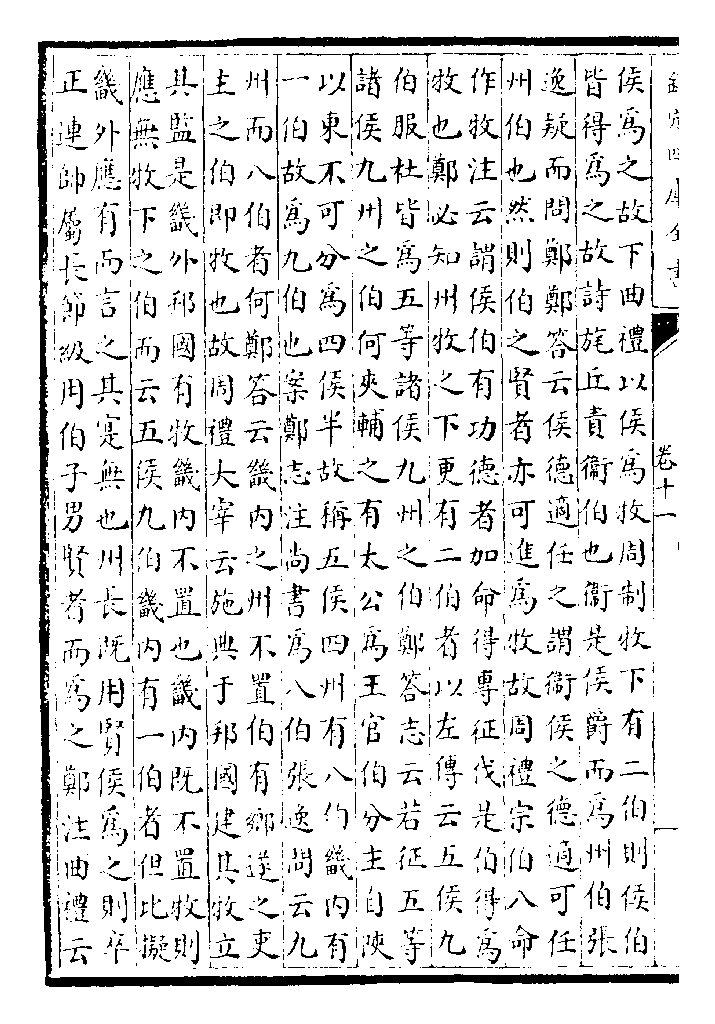 欽定四庫全書
卷十一
侯爲之故下曲禮以侯爲牧周制牧下有二伯則侯伯
皆得爲之故詩旄丘責衞伯也衞是侯爵而爲州伯張
逸疑而問鄭鄭答云侯德適任之謂衞侯之德適可任
州伯也然則伯之賢者亦可進爲牧故周禮宗伯八命
作牧注云謂侯伯有功德者加命得專征伐是伯得爲
牧也鄭必知州牧之下更有二伯者以左傳云五侯九
伯服杜皆爲五等諸侯九州之伯鄭答志云若征五等
諸侯九州之伯何夾輔之有太公爲王官伯分主自陜
以東不可分爲四侯半故稱五侯四州有八伯畿內有
一伯故爲九伯也案鄭志注尚書爲八伯張逸問云九
州而八伯者何鄭答云畿內之州不置伯有鄉遂之吏
主之伯即牧也故周禮大宰云施典于邦國建其牧立
其監是畿外邦國有牧畿內不置也畿內既不置牧則
應無牧下之伯而云五侯九伯畿內有一伯者但比擬
畿外應有而言之其寔無也州長既用賢侯爲之則卒
正連帥屬長節級用伯子男賢者而爲之鄭注曲禮云